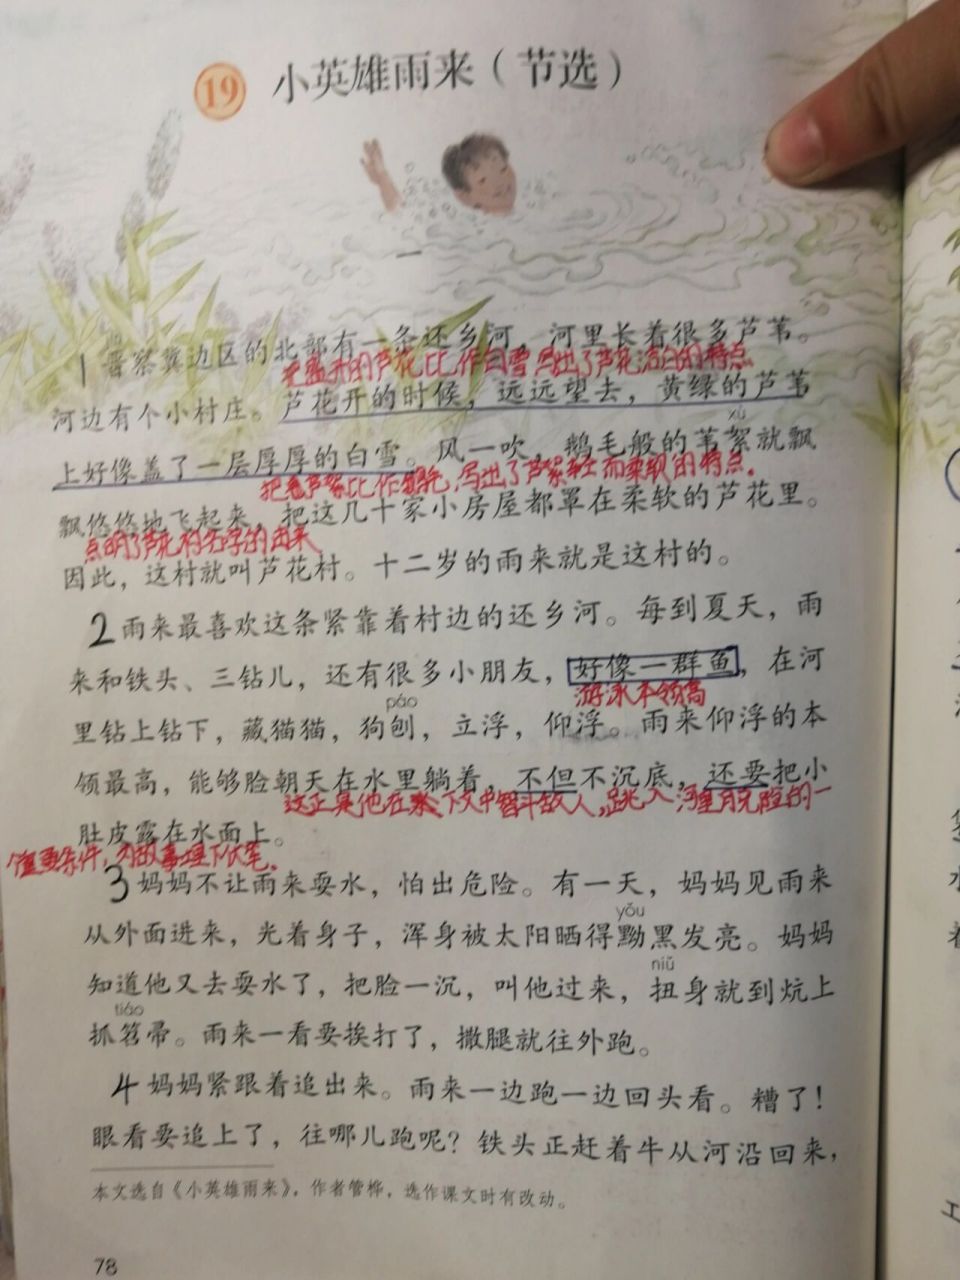 19 小英雄雨来（节选）
一
1 晋察冀边区的北部有一条还乡河，河里长着很多芦苇。
把盛开的芦花比作白雪写出了芦花洁白的特点
河边有个小村庄。芦花开的时候，远远望去，黄绿的芦苇
xù
上好像盖了一层厚厚的白雪。风一吹，鹅毛般的苇絮就飘
芦絮比作鹅毛，写出了芦絮轻而柔软的特点。
飘悠悠地飞起来，把这几十家小房屋都罩在柔软的芦花里。
点明了芦花村名字的由来
因此，这村就叫芦花村。十二岁的雨来就是这村的。
2 雨来最喜欢这条紧靠着村边的还乡河。每到夏天，雨
来和铁头、三钻儿，还有很多小朋友，好像一群鱼，在河
páo
游泳本领高
里钻上钻下，藏猫猫，狗刨，立浮，仰浮。雨来仰浮的本
领最高，能够脸朝天在水里躺着，不但不沉底，还要把小
这正是他在下文中智斗敌人，跳入河里脱险的一
肚皮露在水面上。
个重要条件，为故事埋下伏笔。
3 妈妈不让雨来耍水，怕出危险。有一天，妈妈见雨来
yǒu
从外面进来，光着身子，浑身被太阳晒得黝黑发亮。妈妈
niǔ
知道他又去耍水了，把脸一沉，叫他过来，扭身就到炕上
tiáo
抓笤帚。雨来一看要挨打了，撒腿就往外跑。
4 妈妈紧跟着追出来。雨来一边跑一边回头看。糟了！
眼看要追上了，往哪儿跑呢？铁头正赶着牛从河沿回来，
本文选自《小英雄雨来》，作者管桦，选作课文时有改动。
78